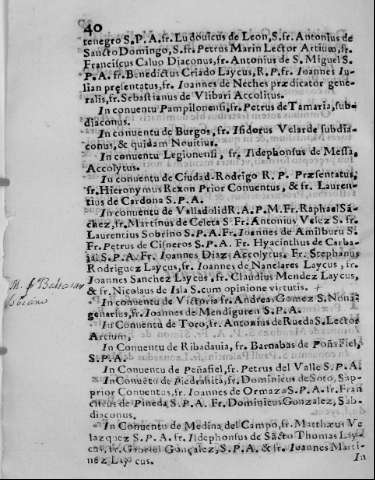 40
tenegro S.P.A. fr. Ludouicus de Leon, S. fr. Antonius de
Sancto Domingo, S. fr. Petrus Marin Lector Artium, fr.
Franciscus Caluo Diaconus, fr. Antonius de S. Miguel S.
P.A. fr. Benedictus Criado Laycus, R, P. fr. Ioannes Iu-
lian præsentatus, fr. Ioannes de Neches prædicator gene-
ralis, fr. Sebastianus de Vlibari Accolitus.
In conuentu Pampilonensi, fr. Petrus de Tamaria, sub-
diaconus.
In conuentu de Burgos, fr. Isidorus Velarde subdia-
conus, & quidam Nouitius.
In conuentu Legionensi, fr. Ildephonsus de Messa,
Accolytus.
In conuentu de Ciudad-Rodrigo R. P. Præsentatus,
fr. Hieronymus Rexon Prior Conuentus, & fr. Laurent-
tius de Cardona S.P.A.
In conuentu de Valladolid R. A. P. M. Fr. Raphael Sã-
chez, fr. Martinus de Celeta S. Fr. Antonius Velez S. fr.
Laurentius Sobrino S.P.A. Fr. Ioannes de Amilburu S.
Fr. Petrus de Cisneros S.P.A. Fr. Hyacinthus de Carba-
jal S.P.A. Fr. Ioannes Diaz Accolytus. Fr. Stephanus
Rodriguez Laycus, fr. Ioannes de Nanclares Laycus, fr.
Ioannes Sanchez Laycus, fr. Claudius Mendez Laycus,
& fr. Nicolaus de Isla S. cum opinione virtutis. +
In conuentu de Victoria fr. Andreas Gomez S. Nona-
genarius, fr. Ioannes de Mendiguren S.P.A.
In Conuentu de Toro, fr. Antonius de Rueda S. Lector
Artium,
In Conuentu de Ribadauia, fr. Barnabas de Peñafiel,
S.P.A.
In Conuentu de Peñafiel, fr. Petrus del Valle S.P.A.
In Conuẽtu de Piedrahita, fr. Dominicus de Soto, Sup-
prior Conuentus, fr. Ioannes de Ormaza S.P.A. fr. Fran
ciscus de Pineda S.P.A. Fr. Dominicus Gonzalez, Sub-
diaconus.
In Conuentu de Medina del Campo, fr. Matthæus Ve
lazquez S.P.A. fr. Ildephonsus de Sãcto Thomas Lay-
cus, fr. Gabriel Gonçalez, S.P.A. & fr. Ioannes Marti-
nez Laycus.
In